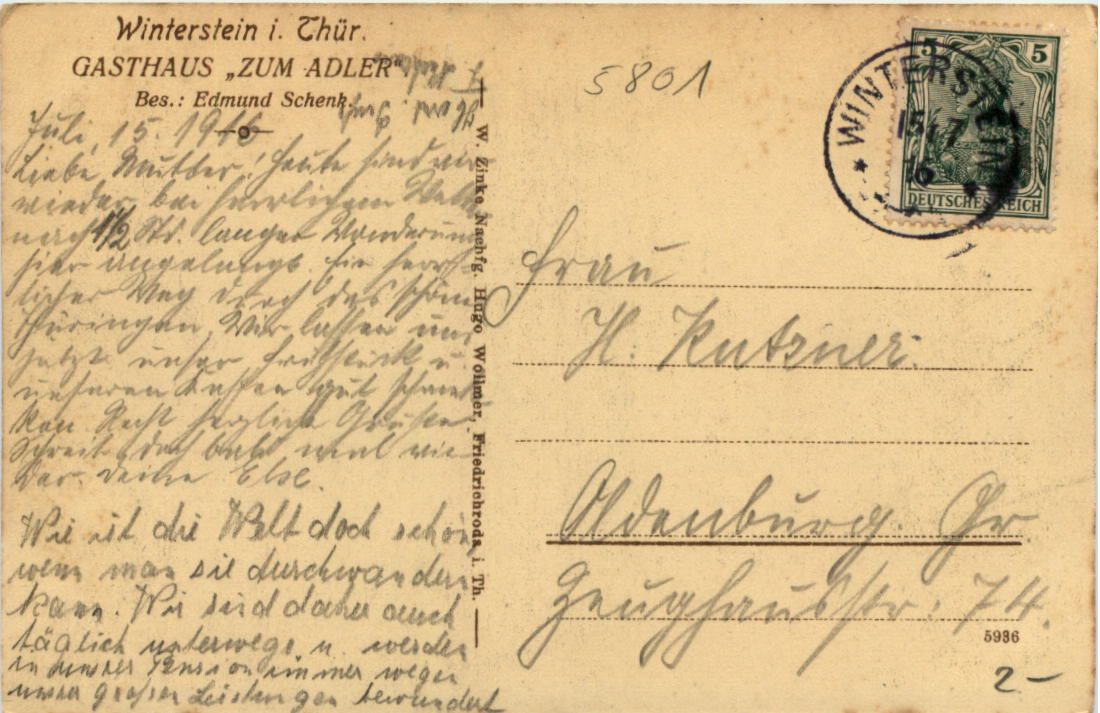 Winterstein i. Thür.
GASTHAUS „ZUM ADLER"
Bes.: Edmund Schenk.
Juli, 15. 1916
Liebe Mutter! Heute sind wir
wieder bei herrlichem Wetter
nach 1½ Std. langer Wanderung
hier angelangt. Ein herr-
licher Weg durch das schöne
Thüringen. Wir lassen uns
jetzt unser Frühstück u.
unseren Kaffee gut schmek-
ken. Recht herzliche Grüße
Schreib doch bald mal wie-
der. Deine Else.
Wie ist die Welt doch schön
wenn man sie durchwandern
kann. Wir sind daher auch
täglich unterwegs u. werden
in unsrer Pension immer wegen
unsrer großen Leistungen bewundert
W. Zinke Nachfg. Hugo Wollmer, Friedrichroda i. Th.
5801
5 5
DEUTSCHES REICH
* WINTERSTEIN *
15.7
16
Frau
H. Kutzner.
Oldenburg Gr.
Zeughausstr. 74.
5936
2-